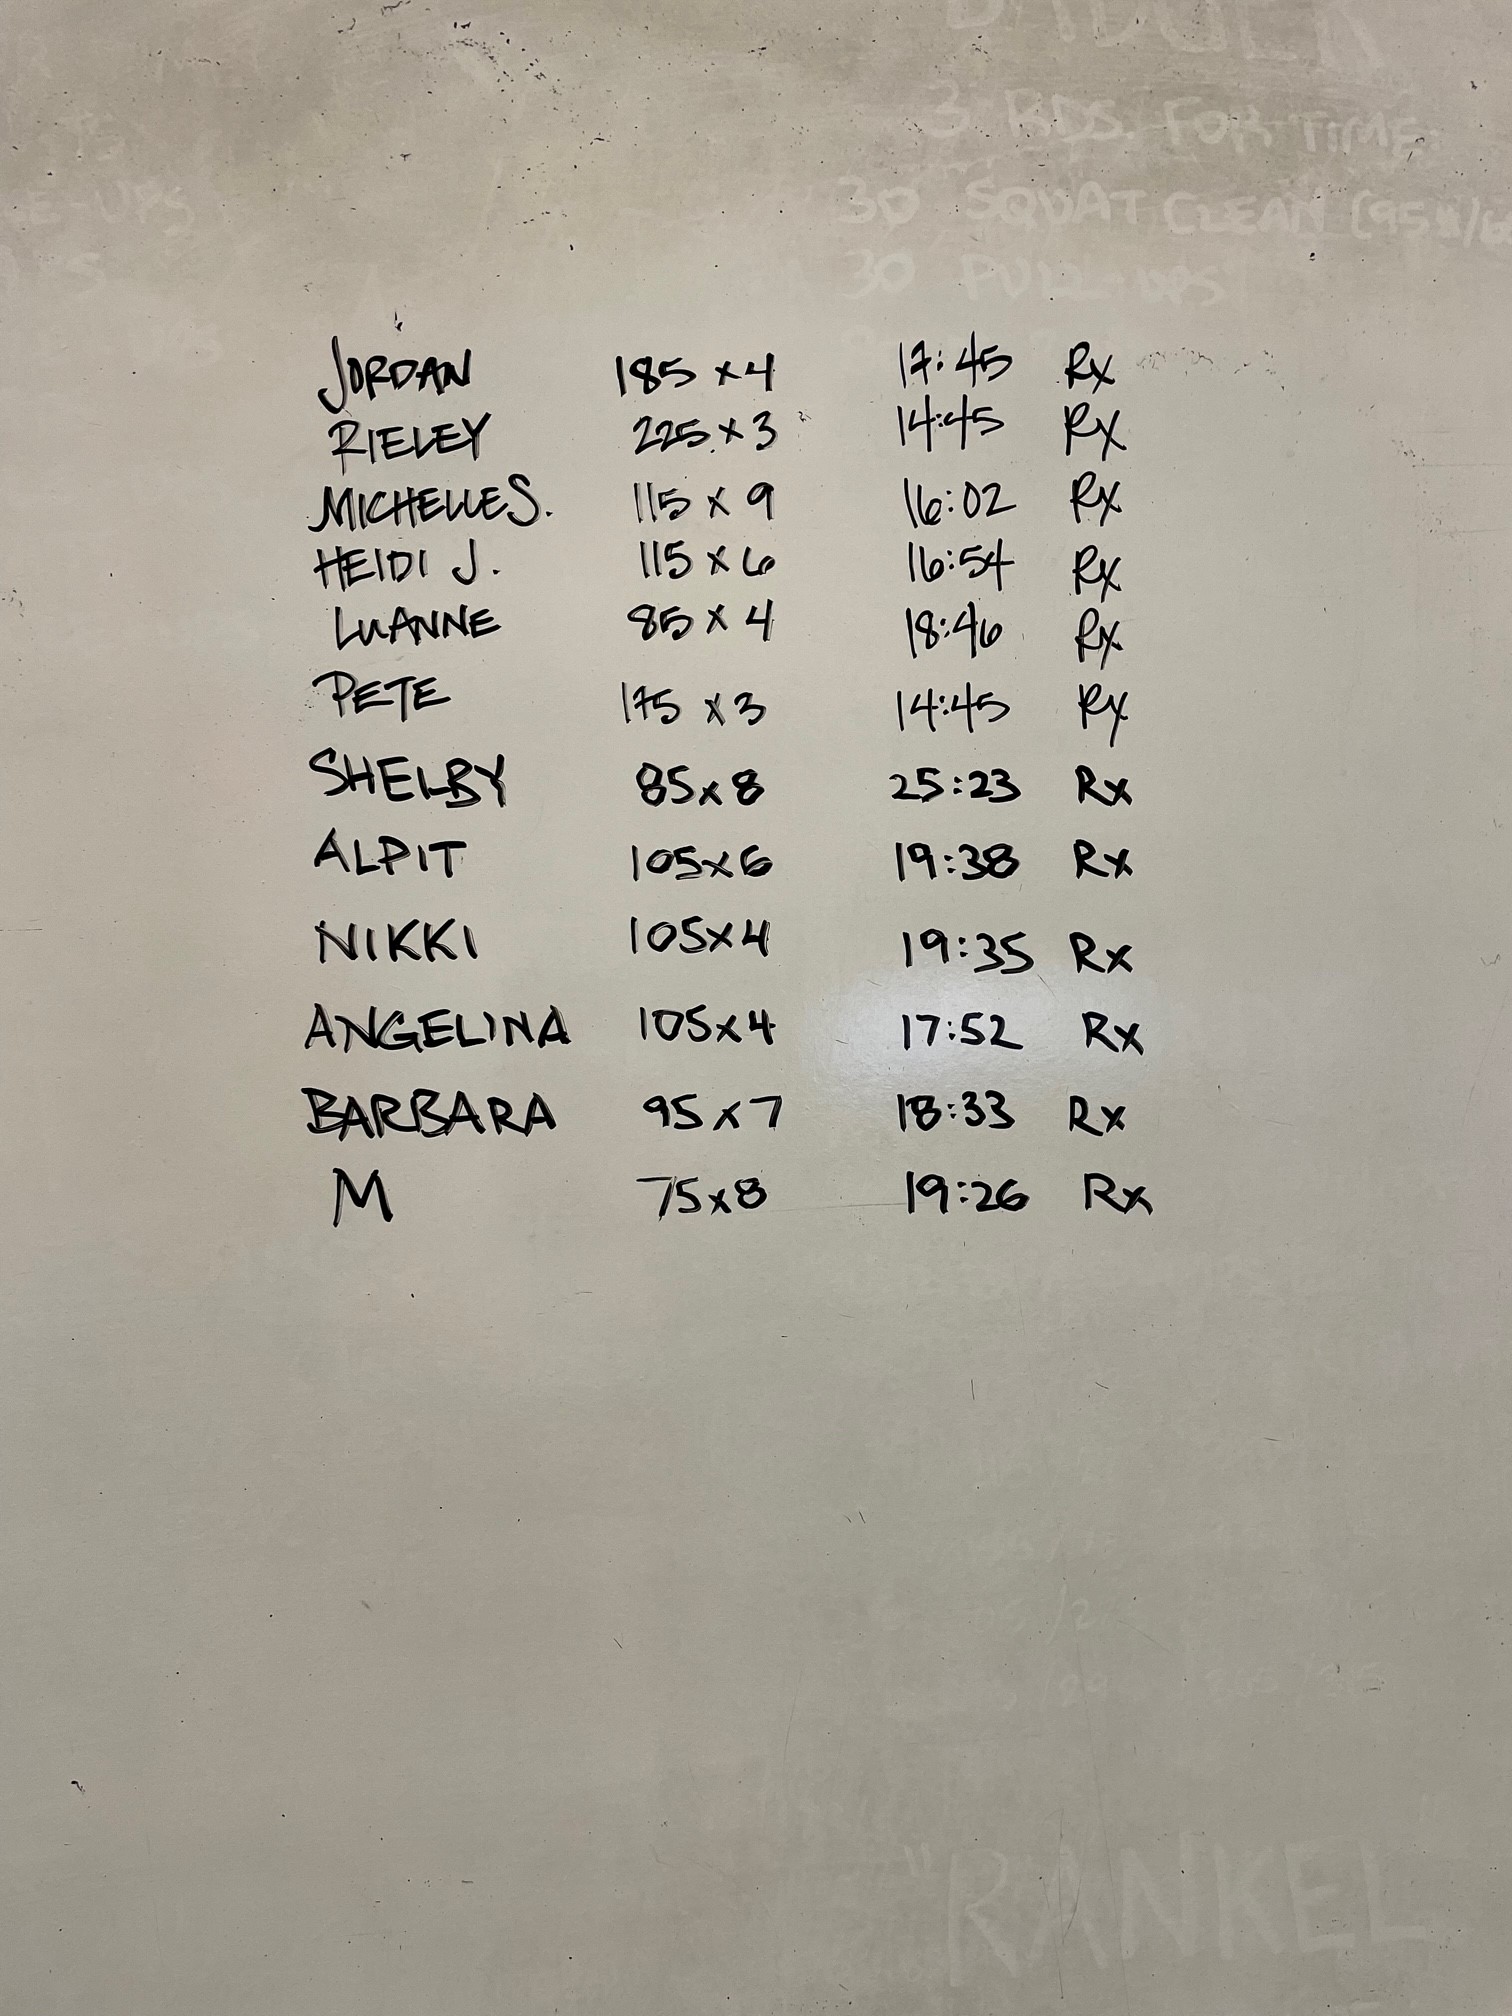 3 RDS. FOR TIME:
30 SQUAT CLEAN (95#/6
30 PULL-UPS
E-UPS
JORDAN 185 x 4 17:45 Rx
RIELEY 225 x 3 14:45 Rx
MICHELLE S. 115 x 9 16:02 Rx
HEIDI J. 115 x 6 16:54 Rx
LUANNE 85 x 4 18:46 Rx
PETE 175 x 3 14:45 Rx
SHELBY 85 x 8 25:23 Rx
ALPIT 105 x 6 19:38 Rx
NIKKI 105 x 4 19:35 Rx
ANGELINA 105 x 4 17:52 Rx
BARBARA 95 x 7 18:33 Rx
M 75 x 8 19:26 Rx
"RANKEL